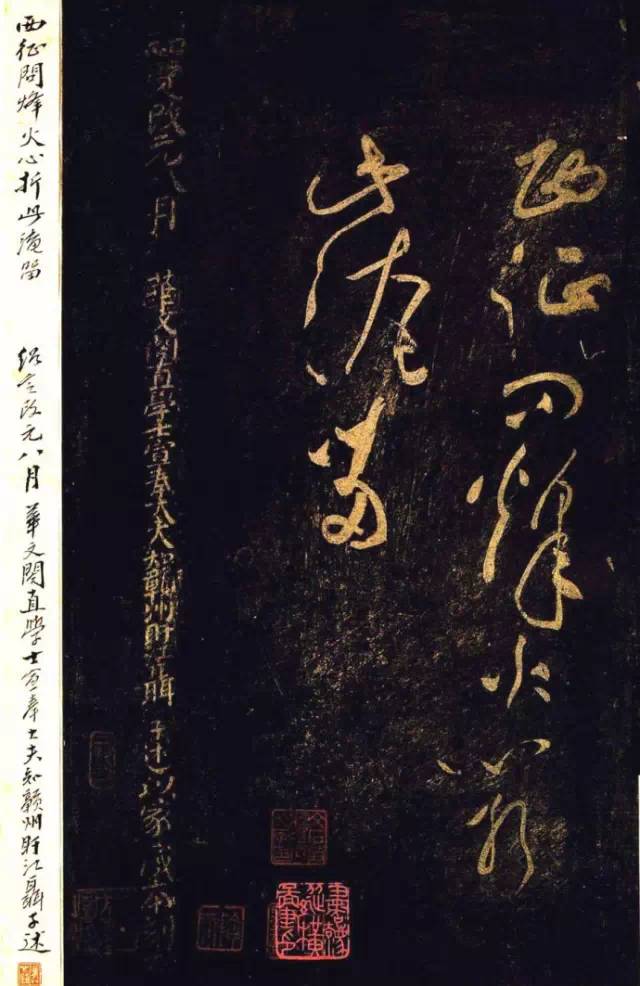 西征問烽火心折
此淹留
紹定改元八月 華文閣直學士宣奉大夫知贛州盱江聶子述以家藏本刻
西征問烽火心折此淹留 紹定改元八月 華文閣直學士宣奉大夫知贛州盱江聶子述